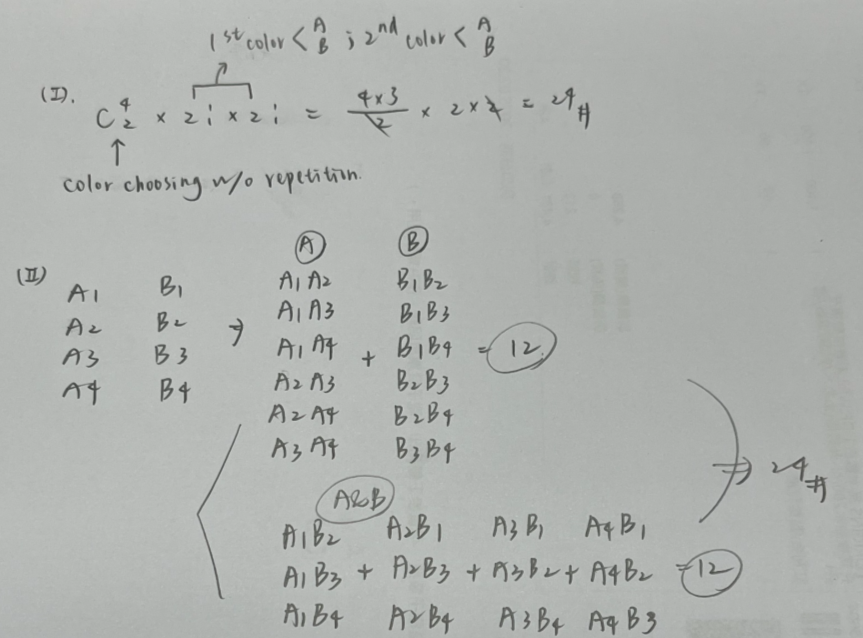 1st color < A B ; 2nd color < A B
(I). C⁴₂ × 2! × 2! = 4×3/2 × 2×2 = 24#
↑
color choosing w/o repetition.
Ⓐ Ⓑ
(II) A1 B1 ⇒ A1A2 B1B2
A2 B2 A1A3 B1B3
A3 B3 A1A4 + B1B4 = 12
A4 B4 A2A3 B2B3
A2A4 B2B4
A3A4 B3B4
⇒ 24#
A&B
A1B2 A2B1 A3B1 A4B1
A1B3 + A2B3 + A3B2 + A4B2 = 12
A1B4 A2B4 A3B4 A4B3